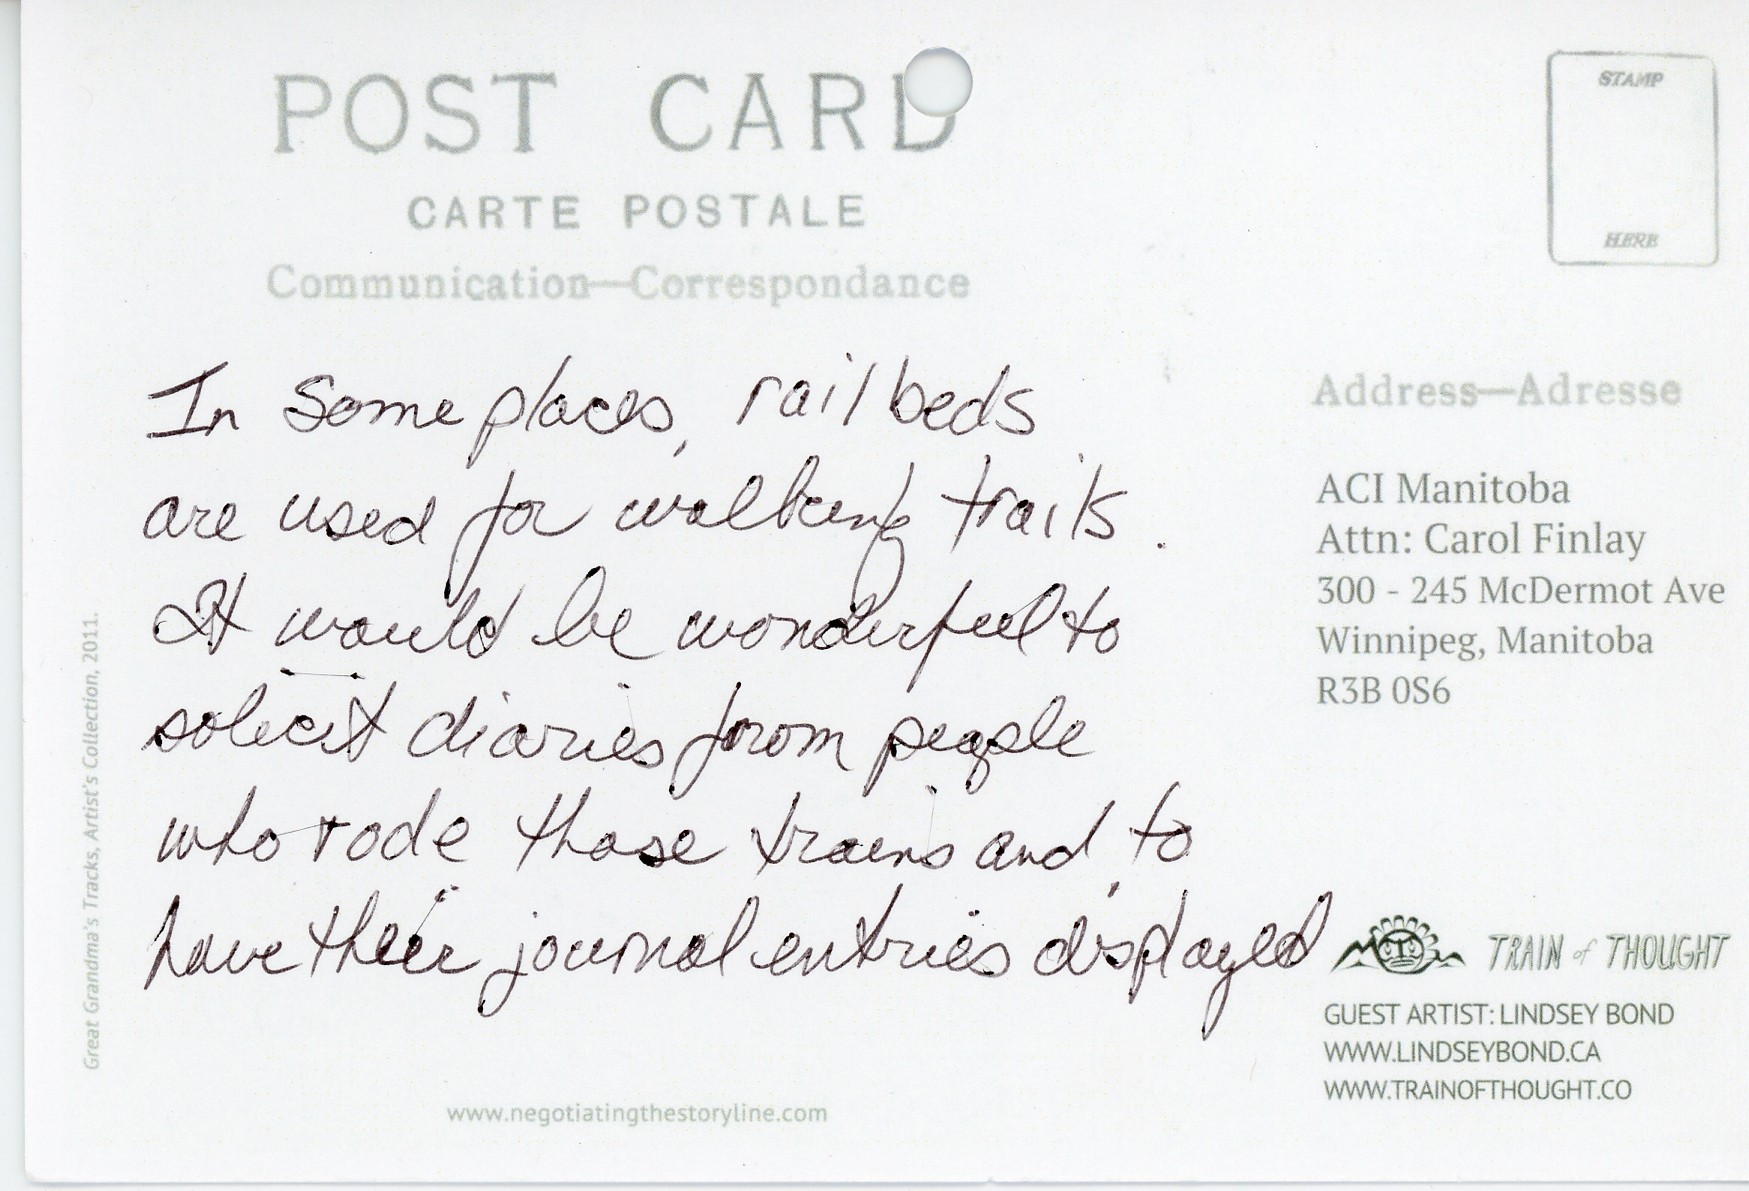 POST CARD
CARTE POSTALE
Communication—Correspondance
STAMP
HERE
In some places, rail beds
are used for walking trails.
It would be wonderful to
solicit diaries from people
who rode those trains and, to
have their journal entries displayed
Great Grandma's Tracks, Artist's Collection, 2011.
www.negotiatingthestoryline.com
Address—Adresse
ACI Manitoba
Attn: Carol Finlay
300 - 245 McDermot Ave
Winnipeg, Manitoba
R3B 0S6
TRAIN of THOUGHT
GUEST ARTIST: LINDSEY BOND
WWW.LINDSEYBOND.CA
WWW.TRAINOFTHOUGHT.CO